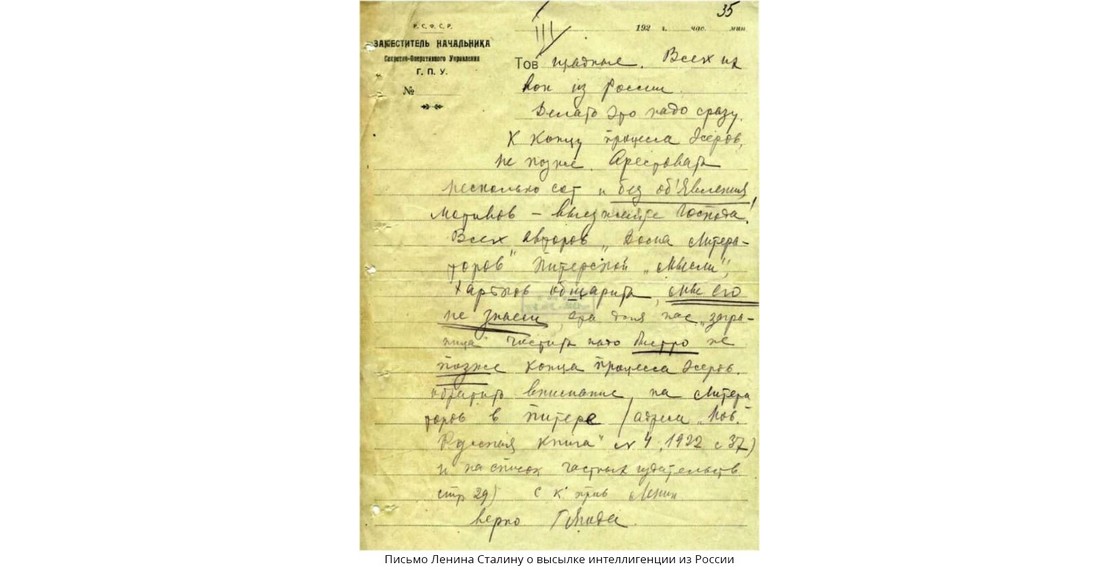 35
Р.С.Ф.С.Р.
ЗАМЕСТИТЕЛЬ НАЧАЛЬНИКА
Секретно-Оперативного Управления
Г. П. У.
№
192 г. час. мин
III
Тов Всех их
вон из России.
Делать это надо сразу.
К концу процесса Эсеров,
не позже. Арестовать
несколько сот и без об'явления
мотивов – выезжайте господа!
Всех авторов „Дома Литера-
торов" Питерской „Мысли",
Харьков обшарить, мы его
не знаем, это для нас „загра-
ница" Чистить надо быстро не
позже конца процесса Эсеров.
Обратить внимание на Литера
торов в Питере (адреса „Нов.
Русская Книга" № 4. 1922 с 37)
и на список частных издательств
стр 29) С к прив Ленин
верно
Письмо Ленина Сталину о высылке интеллигенции из России